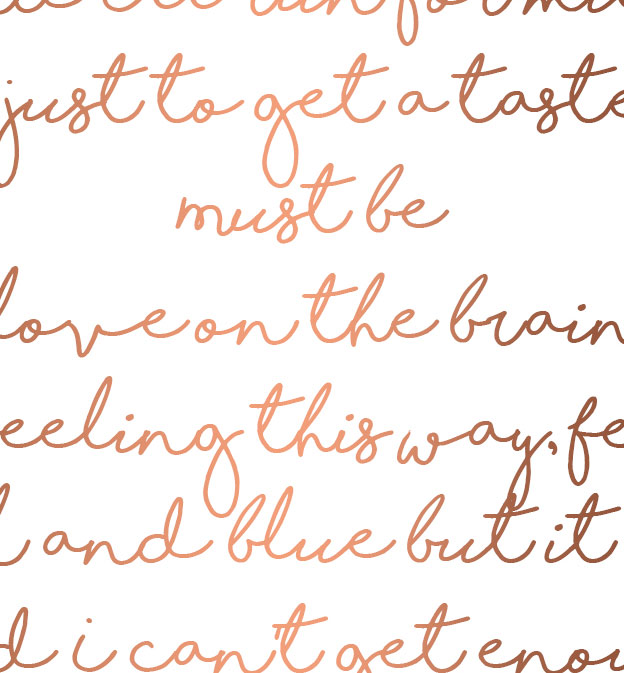 just to get a taste
must be
love on the brain
eeling this way, fe
and blue but it
d i can't get enou